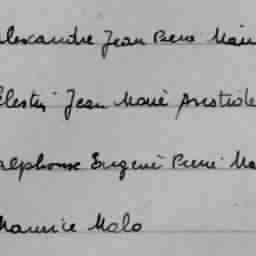 Alexandre Jean Pierre Marie
Célestin Jean Marie Aristide
Alphonse Eugène Pierre Ma
Maurice Malo